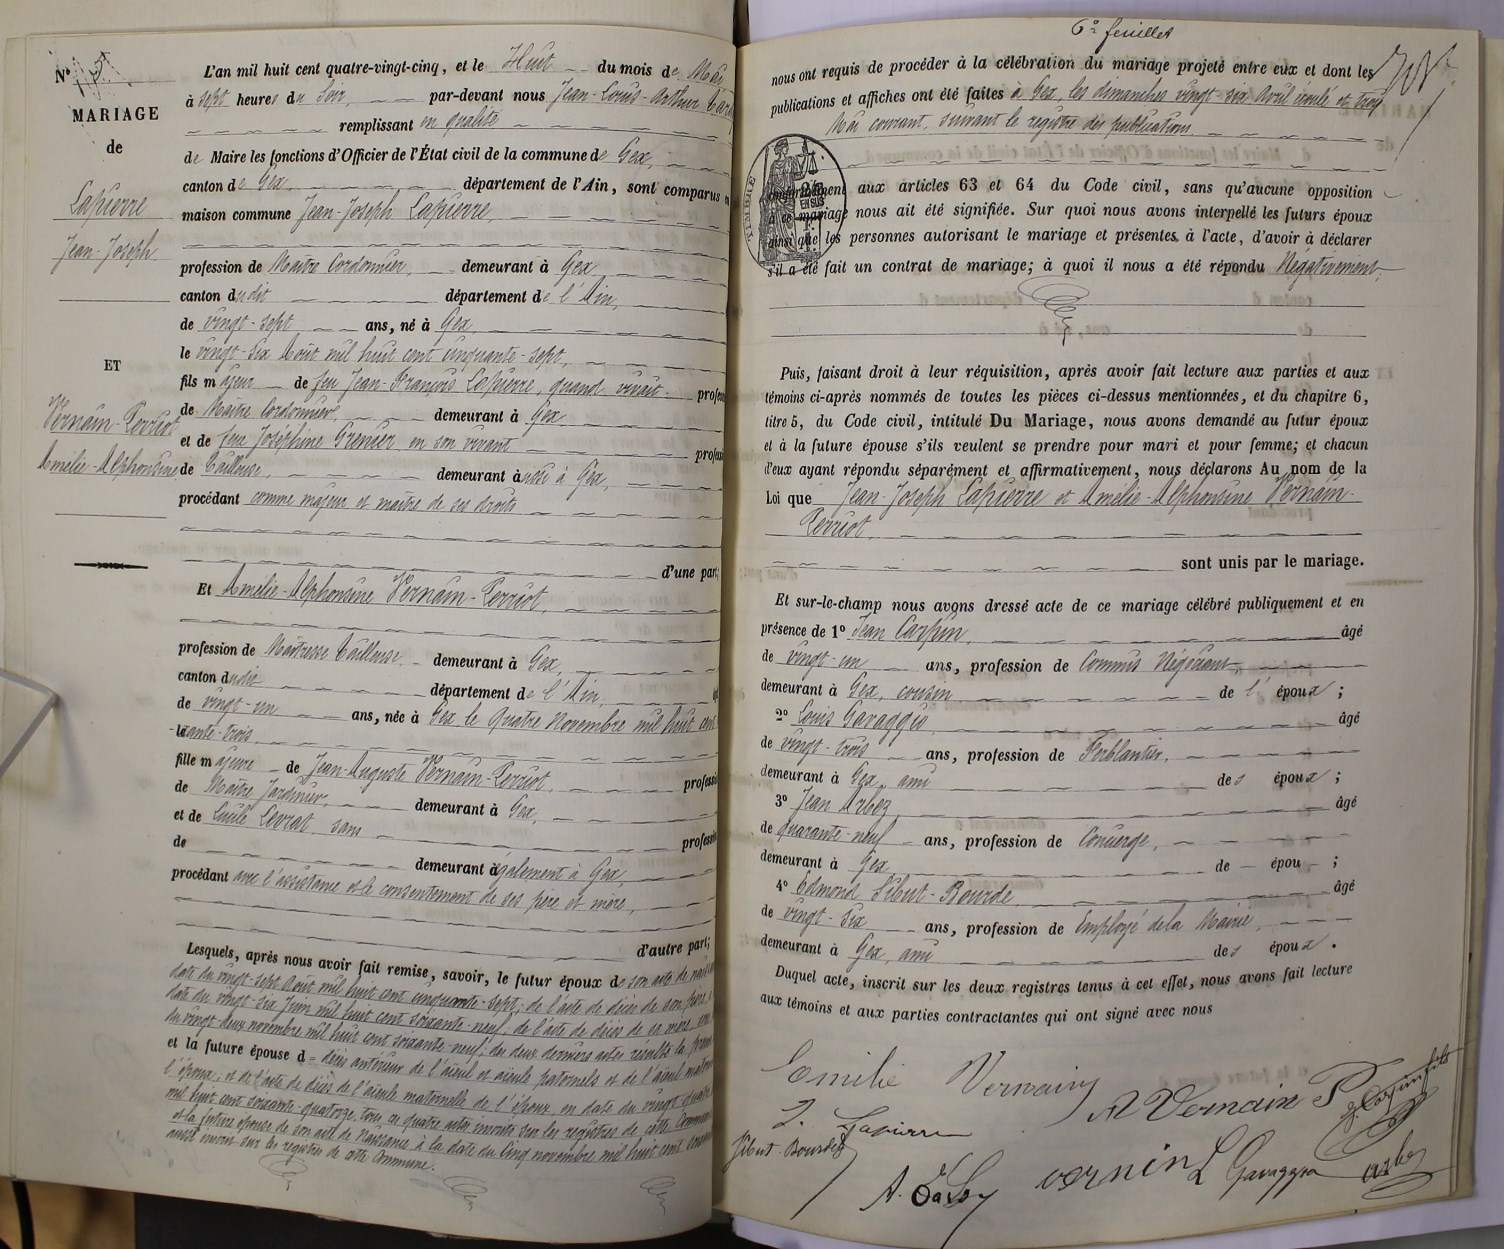 N° 15
MARIAGE
de
Lapierre
Jean-Joseph
ET
Vernain-Perriot
Amélie-Alphonsine
L'an mil huit cent quatre-vingt-cinq, et le Huit du mois de Mai
à sept heures du Soir, par-devant nous Jean-Louis-Arthur
remplissant en qualité
de Maire les fonctions d'Officier de l'État civil de la commune de Gex,
canton de Gex, département de l'Ain, sont comparus en
maison commune Jean-Joseph Lapierre,
profession de Maître Cordonnier, demeurant à Gex
canton dudit département de l'Ain,
de vingt-sept ans, né à Gex,
le vingt-six Août mil huit cent cinquante-sept,
fils majeur de feu Jean-François Lapierre, quand vivait profes
de Maître Cordonnier, demeurant à Gex
et de feue Joséphine Grenier en son vivant profes
de Tailleuse, demeurant aussi à Gex,
procédant comme majeur et maître de ses droits
d'une part;
Et Amélie-Alphonsine Vernain-Perriot,
profession de Maîtresse Tailleuse, demeurant à Gex,
canton dudit département de l'Ain,
de vingt-un ans, née à Gex le Quatre Novembre mil huit cent
soixante-trois
fille majeure de Jean-Auguste Vernain-Perriot, professio
de Maître Jardinier, demeurant à Gex,
et de Emilie Levrat, sans professio
de demeurant également à Gex,
procédant avec l'assistance et le consentement de ses père et mère,
d'autre part;
Lesquels, après nous avoir fait remise, savoir, le futur époux de son acte de
date du vingt-sept Août mil huit cent cinquante-sept; de l'acte de décès de son père,
date du vingt-six Juin mil huit cent soixante-neuf; de l'acte de décès de sa mère,
du vingt-deux novembre mil huit cent soixante-neuf; des deux derniers actes résulte la
et la future épouse d= décès antérieur de l'aïeul et aïeule paternels et de l'aïeul
l'époux; et de l'acte de décès de l'aïeule maternelle de l'époux, en date du vingt
mil huit cent soixante-quatorze, tous ces quatre actes inscrits sur les registres de cette Commune
et la future épouse de son acte de Naissance à la date du Cinq novembre mil huit cent
aussi inscrit sur les registres de cette Commune.
6e feuillet
nous ont requis de procéder à la célébration du mariage projeté entre eux et dont les
publications et affiches ont été faites à Gex, les dimanches vingt-six Avril écoulé et trois
Mai courant, suivant le registre des publications
conformément aux articles 63 et 64 du Code civil, sans qu'aucune opposition
à ce mariage nous ait été signifiée. Sur quoi nous avons interpellé les futurs époux
ainsi que les personnes autorisant le mariage et présentes à l'acte, d'avoir à déclarer
s'il a été fait un contrat de mariage; à quoi il nous a été répondu Négativement,
Puis, faisant droit à leur réquisition, après avoir fait lecture aux parties et aux
témoins ci-après nommés de toutes les pièces ci-dessus mentionnées, et du chapitre 6,
titre 5, du Code civil, intitulé Du Mariage, nous avons demandé au futur époux
et à la future épouse s'ils veulent se prendre pour mari et pour femme; et chacun
d'eux ayant répondu séparément et affirmativement, nous déclarons Au nom de la
Loi que Jean-Joseph Lapierre et Amélie-Alphonsine Vernain-
Perriot,
sont unis par le mariage.
Et sur-le-champ nous avons dressé acte de ce mariage célébré publiquement et en
présence de 1° Jean Carpin, âgé
de vingt-un ans, profession de Commis Négociant
demeurant à Gex, cousin de l'époux;
2° Louis Gavaggio, âgé
de vingt-trois ans, profession de Ferblantier,
demeurant à Gex, ami des époux;
3° Jean Arbez, âgé
de quarante-neuf ans, profession de Concierge,
demeurant à Gex, de épou ;
4° Edmond Sibut-Bourde âgé
de vingt-six ans, profession de Employé de la Mairie,
demeurant à Gex, ami des époux.
Duquel acte, inscrit sur les deux registres tenus à cet effet, nous avons fait lecture
aux témoins et aux parties contractantes qui ont signé avec nous
Emilie Vernain
A Vernain P
J. Carpin fils
J. Lapierre
Sibut-Bourde
vernin
L Gavaggio
arbez